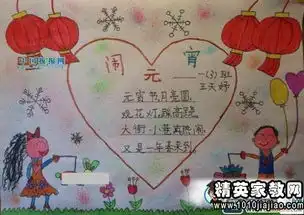 闹元宵
一(3)班
王天婷
元宵节月亮圆
观花灯踩高跷
大街小巷真热闹
又是一年春来到
精英家教网
www.1010jiajiao.com